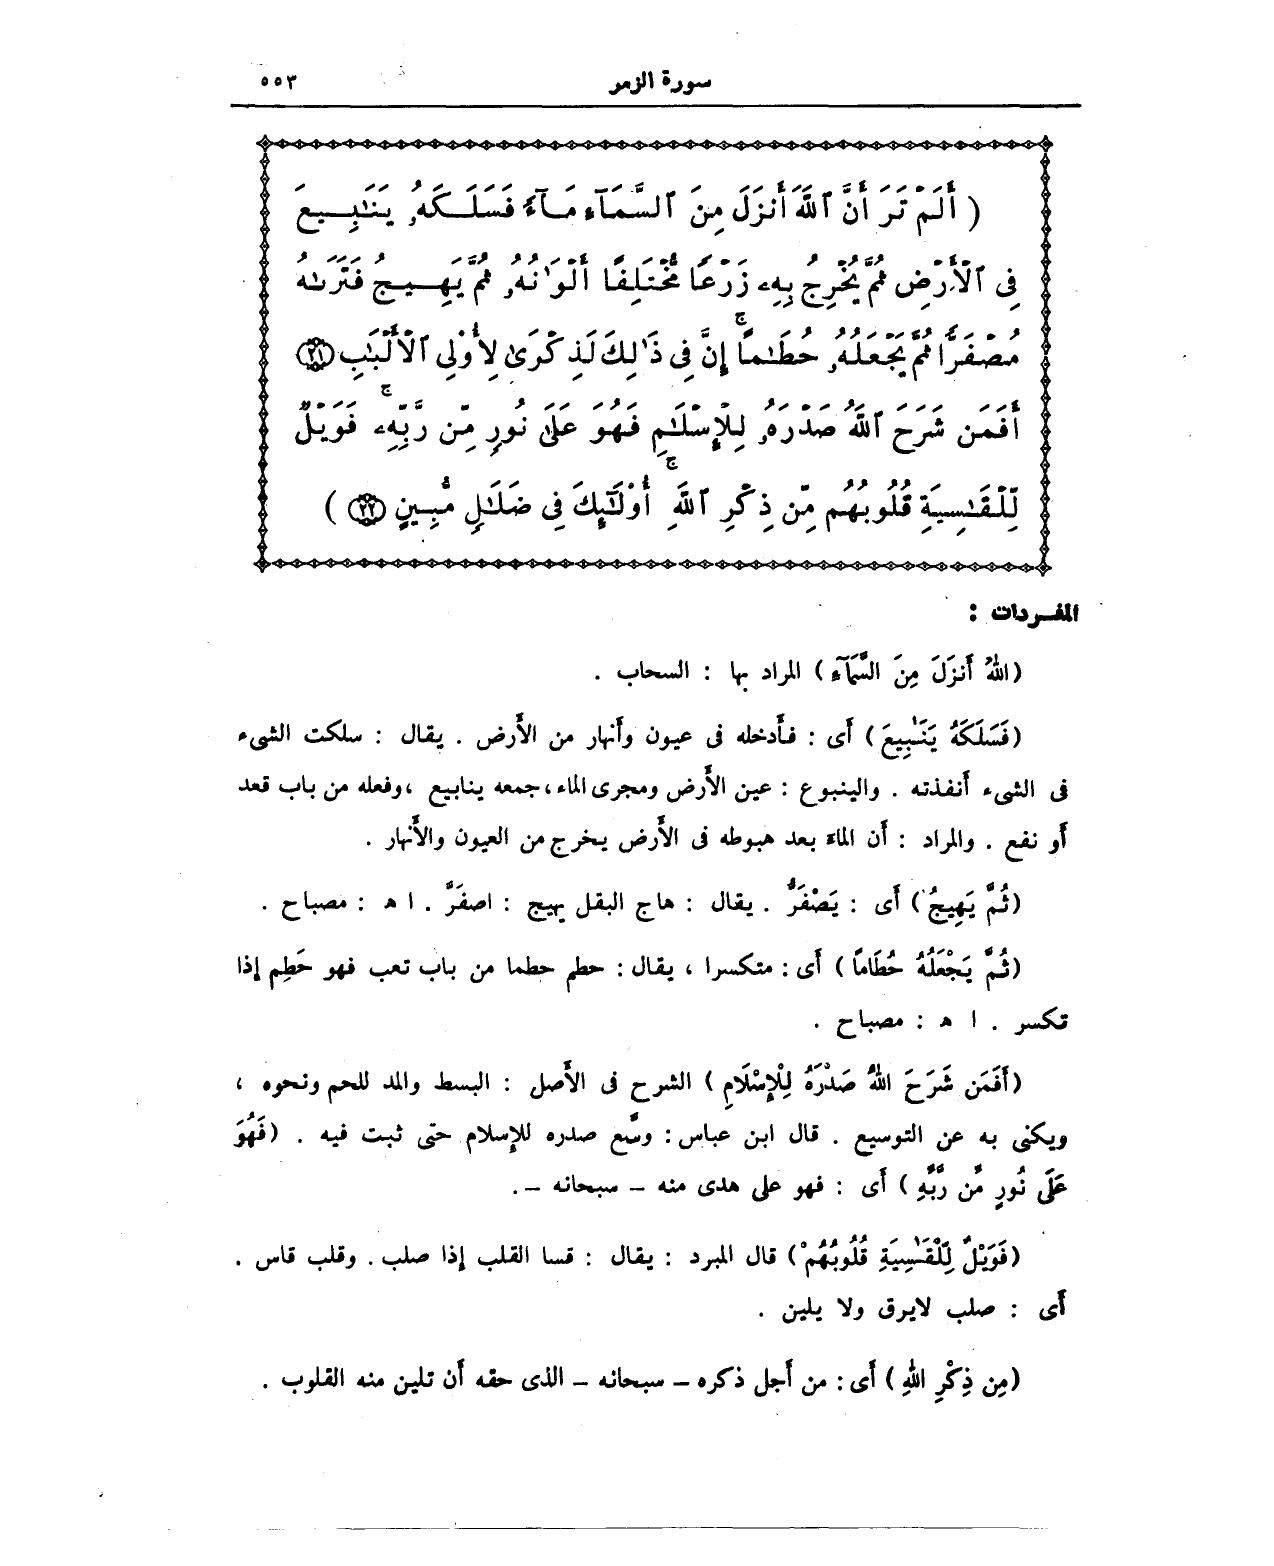 سورة الزمر ٥٥٣
( أَلَمْ تَرَ أَنَّ ٱللَّهَ أَنزَلَ مِنَ ٱلسَّمَآءِ مَآءً فَسَلَكَهُۥ يَنَٰبِيعَ
فِى ٱلْأَرْضِ ثُمَّ يُخْرِجُ بِهِۦ زَرْعًا مُّخْتَلِفًا أَلْوَٰنُهُۥ ثُمَّ يَهِيجُ فَتَرَىٰهُ
مُصْفَرًّا ثُمَّ يَجْعَلُهُۥ حُطَٰمًا ۚ إِنَّ فِى ذَٰلِكَ لَذِكْرَىٰ لِأُو۟لِى ٱلْأَلْبَٰبِ ٢١
أَفَمَن شَرَحَ ٱللَّهُ صَدْرَهُۥ لِلْإِسْلَٰمِ فَهُوَ عَلَىٰ نُورٍ مِّن رَّبِّهِۦ ۚ فَوَيْلٌ
لِّلْقَٰسِيَةِ قُلُوبُهُم مِّن ذِكْرِ ٱللَّهِ ۚ أُو۟لَٰٓئِكَ فِى ضَلَٰلٍ مُّبِينٍ ٢٢ )
المفـردات :
(اللهُ أَنزَلَ مِنَ السَّمَآءِ) المراد بها : السحاب .
(فَسَلَكَهُ يَنَٰبِيعَ) أَى : فأَدخله فى عيون وأَنهار من الأَرض . يقال : سلكت الشىء
فى الشىء أَنفذته . والينبوع : عين الأَرض ومجرى الماء، جمعه ينابيع ،وفعله من باب قعد
أَو نفع . والمراد : أَن الماءَ بعد هبوطه فى الأَرض يخرج من العيون والأَنهار .
(ثُمَّ يَهِيجُ) أَى : يَصْفَرُّ . يقال : هاج البقل يهيج : اصفَرَّ . ا ه : مصباح .
(ثُمَّ يَجْعَلُهُ حُطَامًا) أَى : متكسرا ، يقال : حطم حطما من باب تعب فهو حَطِم إذا
تكسر . ا ه : مصباح .
(أَفَمَن شَرَحَ اللهُ صَدْرَهُ لِلْإِسْلَامِ) الشرح فى الأَصل : البسط والمد للحم ونحوه ،
ويكنى به عن التوسيع . قال ابن عباس : وسَّع صدره للإسلام حتى ثبت فيه . (فَهُوَ
عَلَى نُورٍ مِّن رَّبِّهِ) أَى : فهو على هدى منه – سبحانه –.
(فَوَيْلٌ لِّلْقَٰسِيَةِ قُلُوبُهُمْ) قال المبرد : يقال : قسا القلب إذا صلب . وقلب قاس .
أَى : صلب لايرق ولا يلين .
(مِن ذِكْرِ اللهِ) أَى : من أَجل ذكره – سبحانه – الذى حقه أَن تلين منه القلوب .